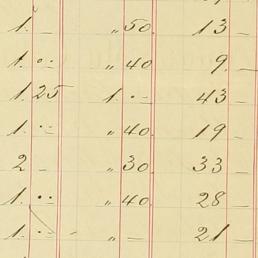 1. — „ 50. 13 —
1. .. „ 40 9. —
1. 25 1. — 43 —
1. .. „ 40. 19 —
2 — „ 30. 33 —
1. .. „ 40. 28 —
1. .. „ — 21 —